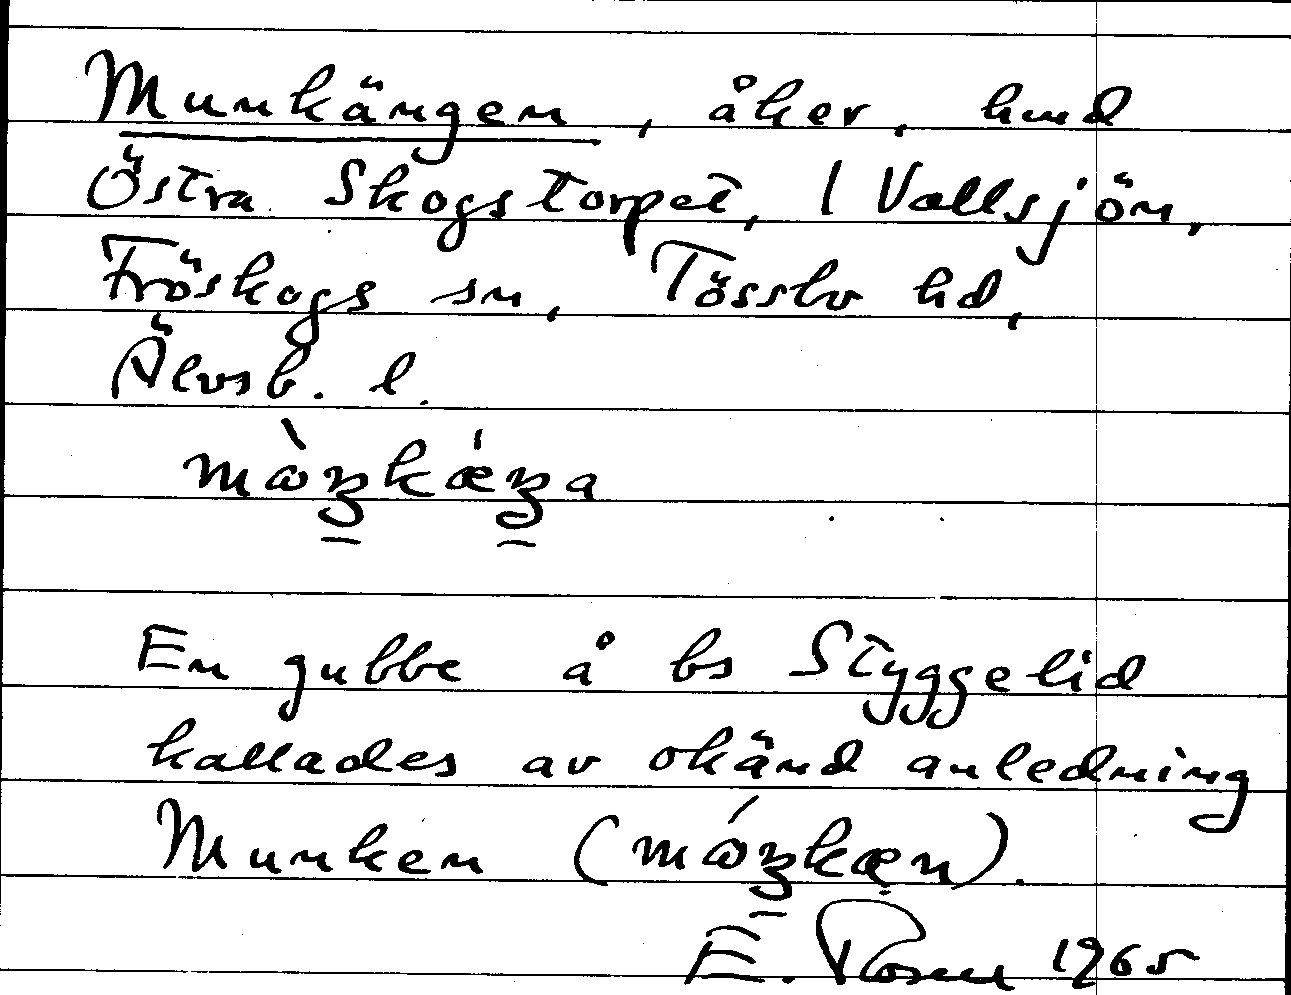 Munkängen, åker, hmd
Östra Skogstorpet, 1 Vallsjön,
Fröskogs sn, Tössbo hd,
Älvsb. l.
En gubbe å bs Styggelid
kallades av okänd anledning
Munken
E. Rosell 1965